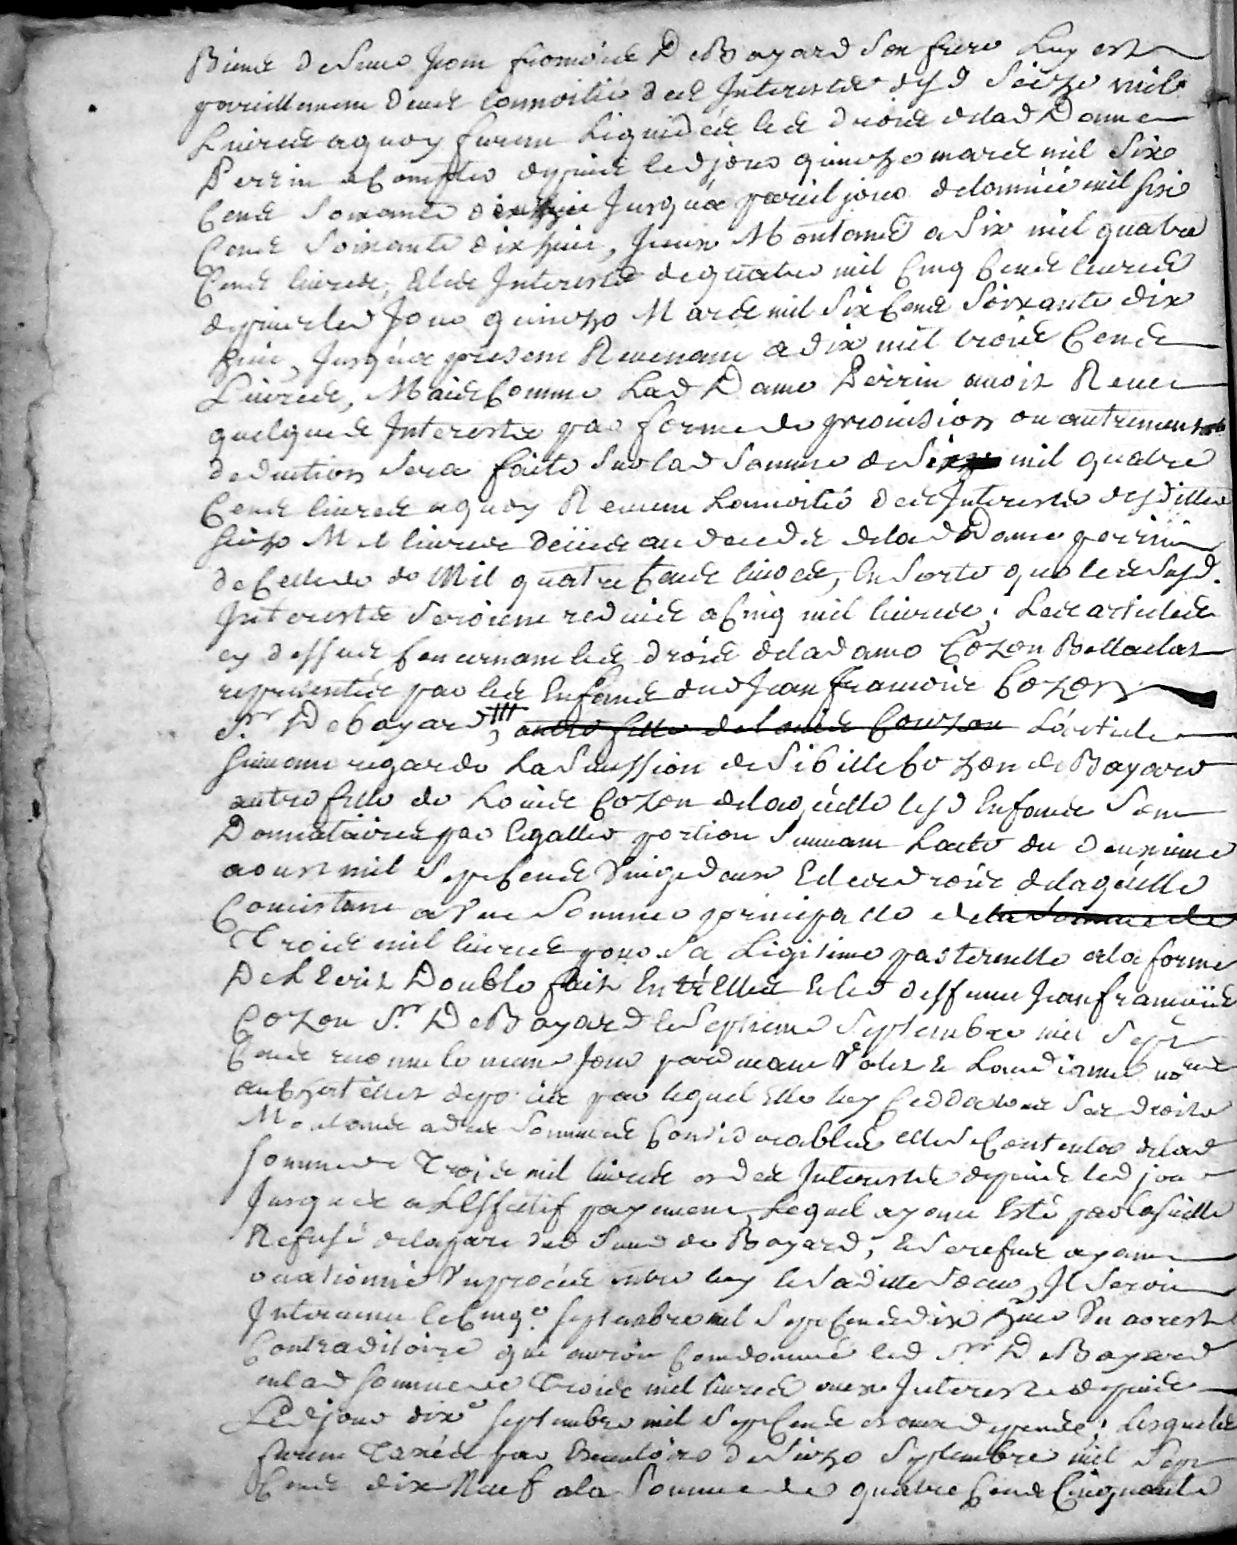 Biens de feu Jean francois De Bayard son frere Luy est
pareillement deue la moitié des Interests desd seize mil
Livres a quoy furent Liquidés les droits de lad Dame
Perrin a Compter depuis led jour quinze mars mil six
Cens soixante Jusqua pareil jour de lannée mil six
Cens soixante dix huit, Iceux Montants a six mil quatre
Cens livres, et les Interests de quatre mil Cinq Cens livres
depuis led Jour quinze Mars mil six Cens soixante dix
huit, Jusqua present Revenant a dix mil trois Cens
Livres, Mais Comme Lad Dame Perrin avoit Receu
quelques Interests par forme de provision ou autrement
deduction sera faite sur lad somme de six mil quatre
Cens livres a quoy Revient la moitié des Interests desdittes
seize Mil livres deües au deces de lad Dame perrin
de Celle de Mil quatre Cens livres, En sorte que les susd.
Interests seroient reduits a Cinq mil livres; Les articles
cy dessus Concernant les droits de la dame Cozon Bellaclat
representée par les Enfans dud Jean francois Cozon
Sr De bayard, autre fille de Louise Couzon L'article
suivant regarde La succession de Sibille Cozon de Bayard
autre fille de Louise Cozon de laquelle lesd Enfans sont
Donnataires par Egalles portion suivant Lacte du deuxieme
aoust mil sept Cens vingt deux Et les droits de laquelle
Consistent a Une somme principalle de la somme de
Trois mil livres pour sa Legitime paternelle a la forme
De l'Ecrit Double fait Entr'Elles Et led deffunt Jean francois
Cozon Sr De Bayard le septieme septembre mil sept
Cens reconnu le meme Jour pardevant
par lequel Elle luy Cedda tous ses droits
Montants a des sommes Considerables elle se Contenta de lad
somme de Trois mil livres et des Interests depuis led jour
Jusques a L'Effectif payement, Lequel ayant Esté par la suitte
Refusé de la part dud Sieur de Bayard, le refus ayant
occasionné Un procés entre luy et saditte soeur, Il seroit
Intervenu le Cinqe septembre mil sept Cens dix huit Un arrest
Contraditoire qui auroit Condamné led Sr De Bayard
en lad somme de Trois mil livres aux Interests depuis
Led jour dixe septembre mil sept Cens et aux depends; Lesquels
furent Taxés par Executoire du seize septembre mil sept
Cens dix Neuf a la somme de quatre Cens Cinquante